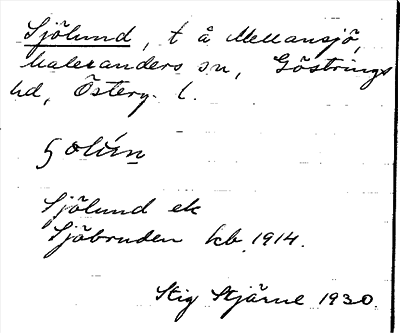 Sjölund, t å Mellansjö,
Malexanders sn, Göstrings
hd, Österg. l.
Sjölund ek
Sjöbruden kb 1914.
Stig Stjärne 1930.